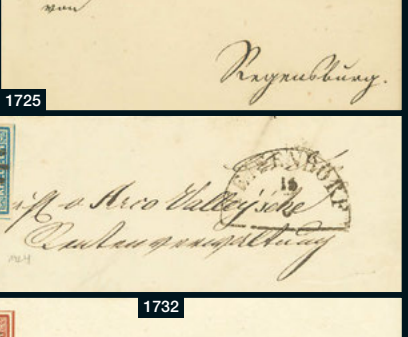 von
Regensburg.
1725
15
Arco Valley'sche
Rentenverwaltung
1732